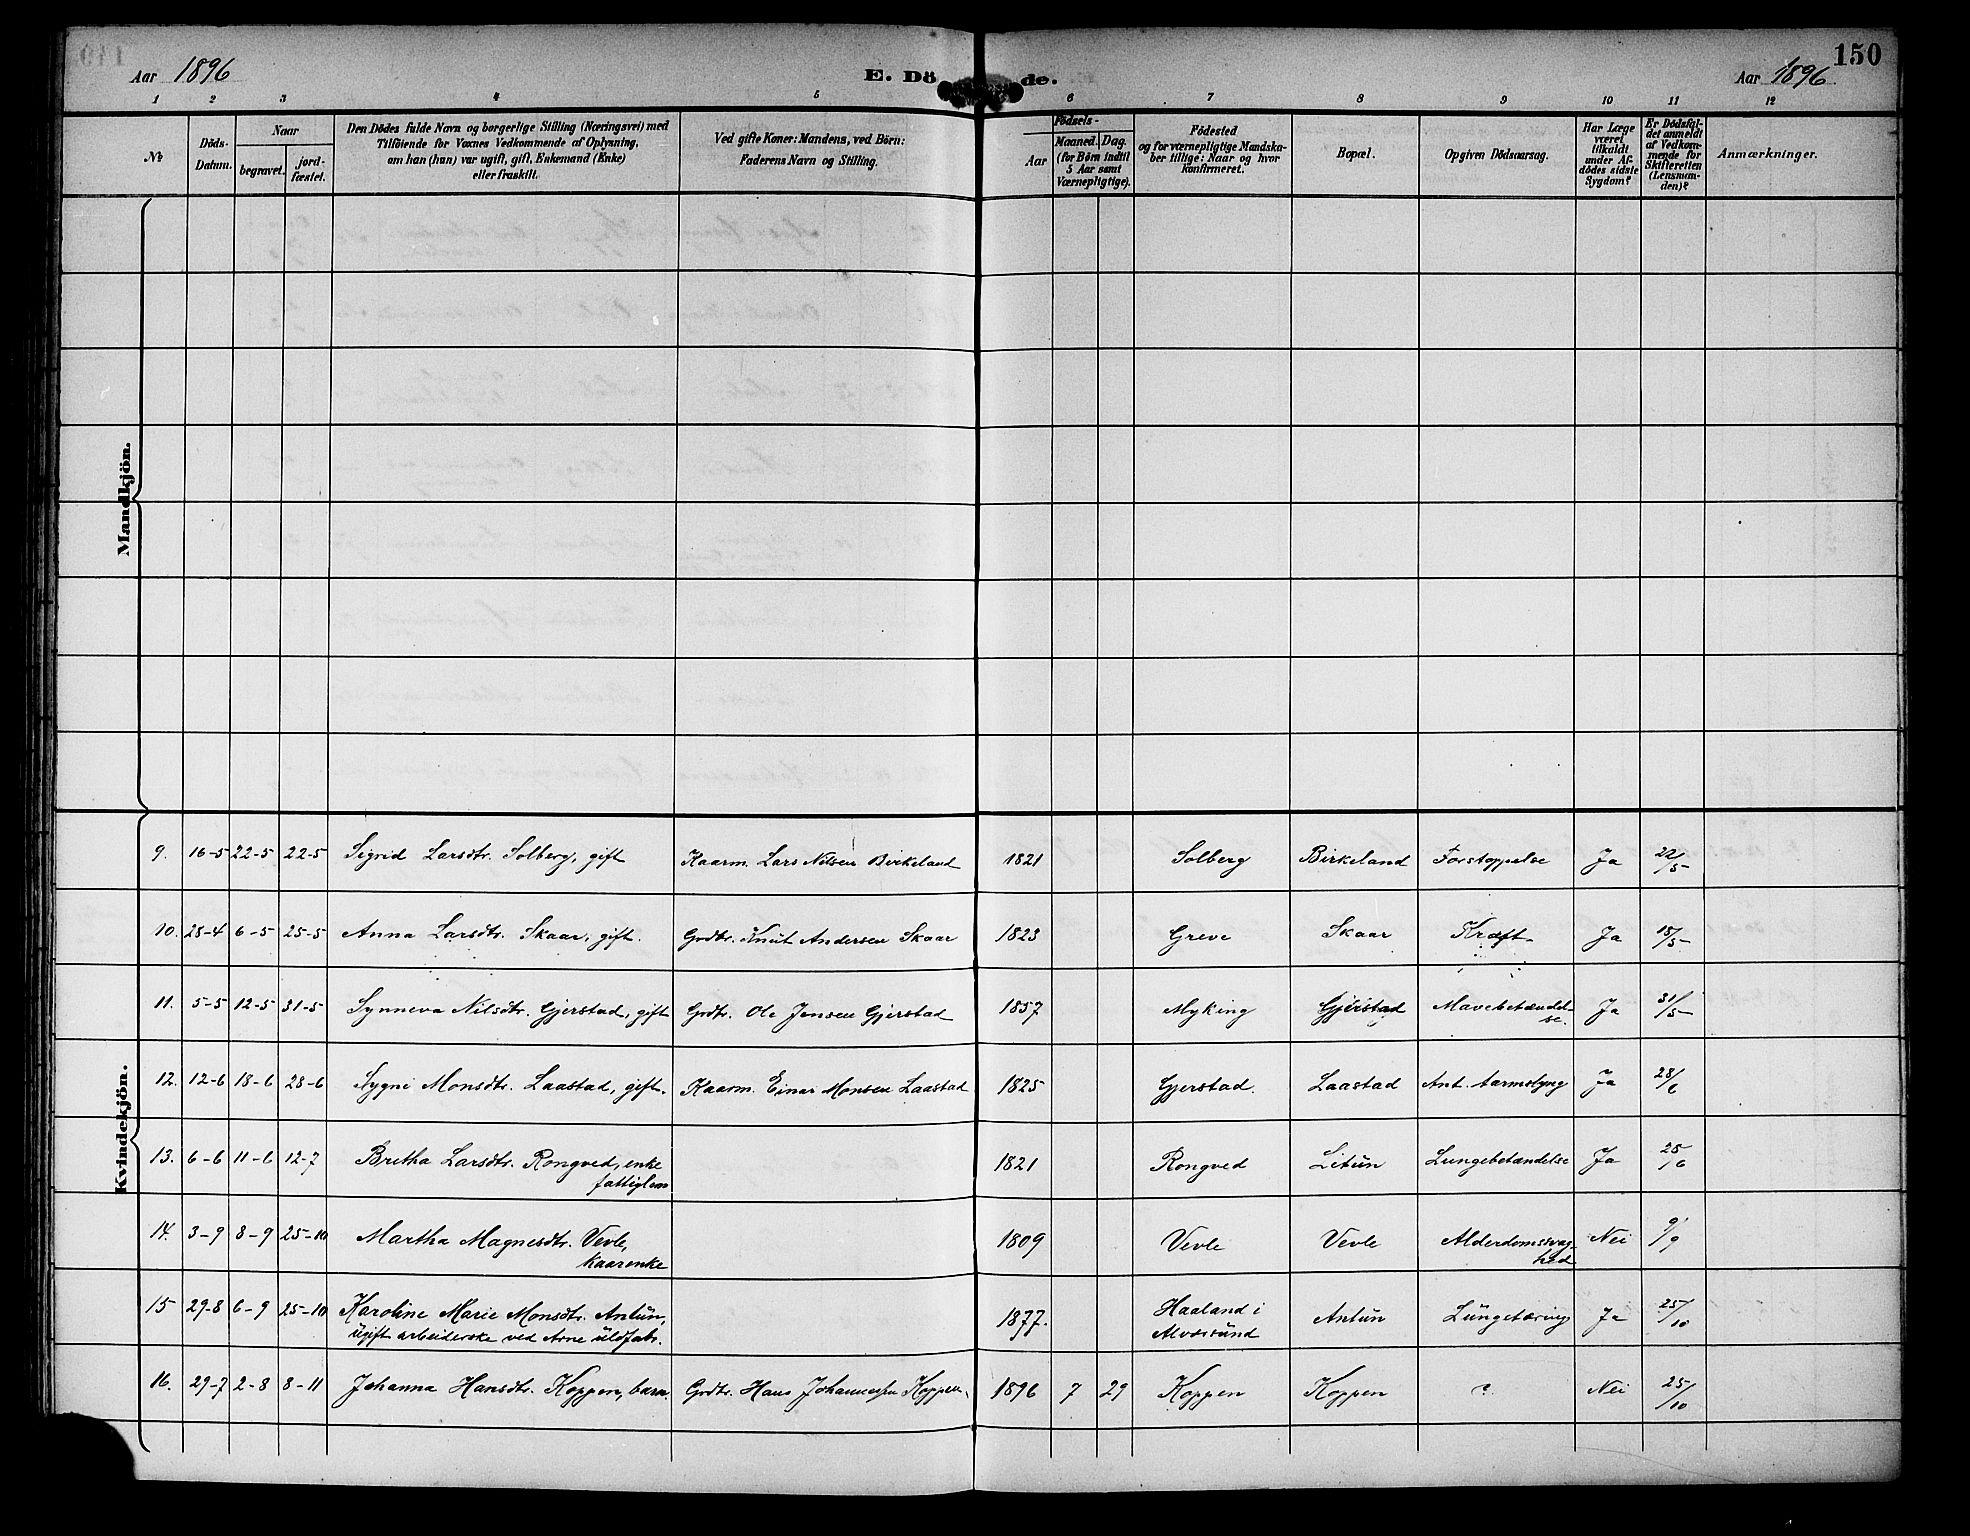 Aar 1896
E. Dö de.
Aar 1896
150
1 2 3 4 5 6 7 8 9 10 11 12
№
Döds-
Datum.
Naar
begravet.
jord-
fæstet.
Den Dödes fulde Navn og borgerlige Stilling (Næringsvei) med
Tilföiende for Voxnes Vedkommende af Oplysning,
om han (hun) var ugift, gift, Enkemand (Enke)
eller fraskilt.
Ved gifte Koner: Mandens, ved Börn:
Faderens Navn og Stilling.
Födsels-
Aar
Maaned. Dag.
(for Börn indtil
5 Aar samt
Værnepligtige).
Födested
og for værnepligtige Mandska-
ber tillige: Naar og hvor
konfirmeret.
Bopæl.
Opgiven Dödsaarsag.
Har Læge
været
tilkaldt
under Af-
dödes sidste
Sygdom?
Er Dödsfal-
det anmeldt
af Vedkom-
mende for
Skifteretten
(Lensman-
den)?
Anmærkninger.
Mandkjön.
Kvindekjön.
9. 16-5 22-5 22-5 Sigrid Larsdtr. Solberg, gift Kaarm. Lars Nilsen Birkeland 1821 Solberg Birkeland Forstoppelse Ja 22/5
10. 28-4 6-5 25-5 Anna Larsdtr. Skaar, gift. Grdtr. Knut Andersen Skaar 1823 Greve Skaar Kræft Ja 18/5
11. 5-5 12-5 31-5 Synneva Nilsdtr. Gjerstad, gift Grdtr. Ole Jensen Gjerstad 1857 Myking Gjerstad Mavebetændel-
se. Ja 31/5
12. 12-6 18-6 28-6 Sygni Monsdtr. Laastad, gift. Kaarm. Einar Monsen Laastad 1825 Gjerstad. Laastad Ant. tarmslyng Ja 28/6
13. 6-6 11-6 12-7 Bretha Larsdtr. Rongved, enke
fattiglem 1821 Rongved Litün Lungebetændelse Ja 25/6
14. 3-9 8-9 25-10 Martha Magnesdtr. Vevle,
kaarenke 1809 Vevle Vevle Alderdomssvag-
hed Nei 9/9
15 29-8 6-9 25-10 Karoline Marie Monsdtr. Antün,
ügift arbeiderske ved Arne üldfabr. 1877. Haaland i
Alværsünd Antün Lüngetæring Ja 25/10
16. 29-7 2-8 8-11 Johanna Hansdtr. Koppen, barn. Grdtr. Hans Johannessen Koppen. 1896 7 29 Koppen Koppen ? Nei 25/10